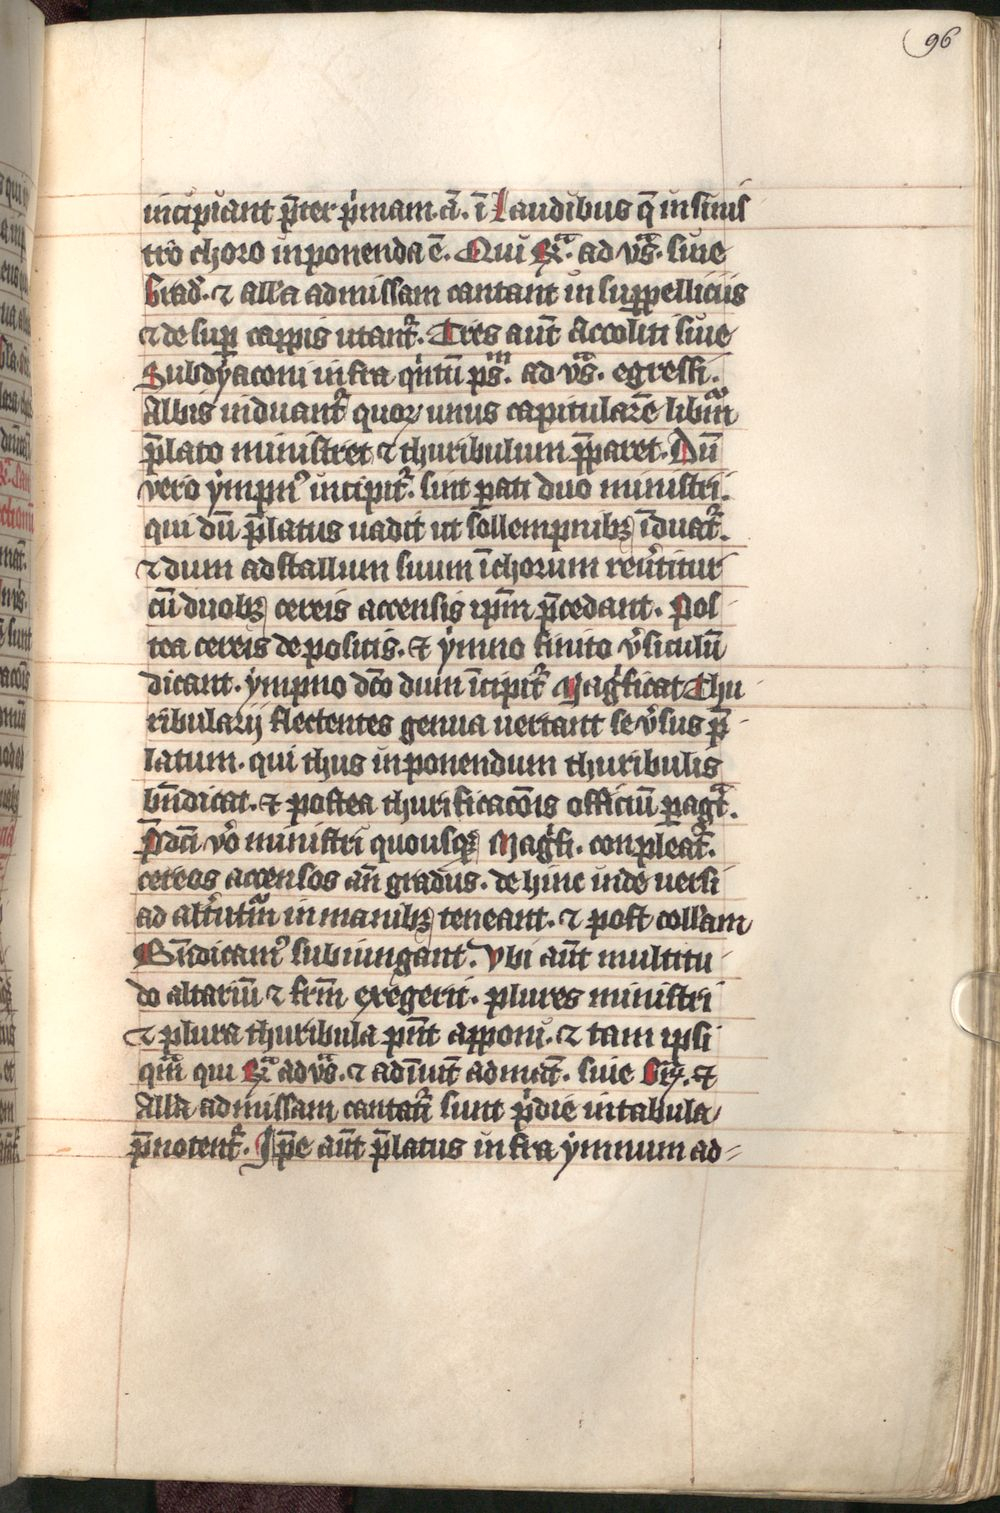 96
incipiant p̄ter p̍mam.a̅. i̅ Laudibus q̅ in sinis
tro choro inponenda e̅. Qui R̷ͣ. ad vͣs̅. siue
Grad̍. ⁊ all̍a ad missam cantant in suppelliciis
⁊ de sup̲ cappis utant᷑. Tres aut̅ Accoliti siue
Subdẏaconi infra q̍ntu̅ ps̅ᵐ. ad vͣs̅. egressi.
Albis induant᷑ quoꝝ unus capitulare̅ libꝝ̅
p̄lato ministret ⁊ thuribulum p̄paret. Du̅
vero ẏmpn᷒ incipit᷑. sint ꝑati duo ministri.
qui du̅ p̄latus uadit ut sollempnibꝫ i̅duat᷑.
⁊ dum ad stallum suum i̅ chorum reu̍titur
cu̅ duobꝫ cereis accensis ip̅m p̄cedant. Pos
tea cereis depositis. ⁊ ẏmno finito v̍siculu̅
dicant. ẏmpno dc̅o dum i̅cipit᷑ Mag̍ficat Thu
ribularij flectentes genua uertant se v̍sus p̄
latum. qui thus inponendum thuribulis
bn̅dicat. ⁊ postea thurificac̅o̅is officiu̅ ꝑagͣt.
P̄dc̅i v̍o ministri quousqꝫ Mag̍fi. conpleat᷑.
cereos accensos an̅ gradus. de hinc inde uersi
ad alt̍ut̍m in manibꝫ teneant. ⁊ post coll̍am
Bn̅dicam᷒ subiungant. Vbi aut̅ multitu
do altariu̅ ⁊ frm̅ exegerit. plures ministri
⁊ plura thuribula pn̅t apponi. ⁊ tam ipsi
qͣm qui R̷ͣ ad vͣs̅. ⁊ ad i̅uit̅ ad mat̅. siue Gꝝ̅. ⁊
All̍a ad missam cantat᷑i sunt p̍die in tabula
p̄notent᷑. Ip̅e aut̅ p̄latus infra ẏmnum ad